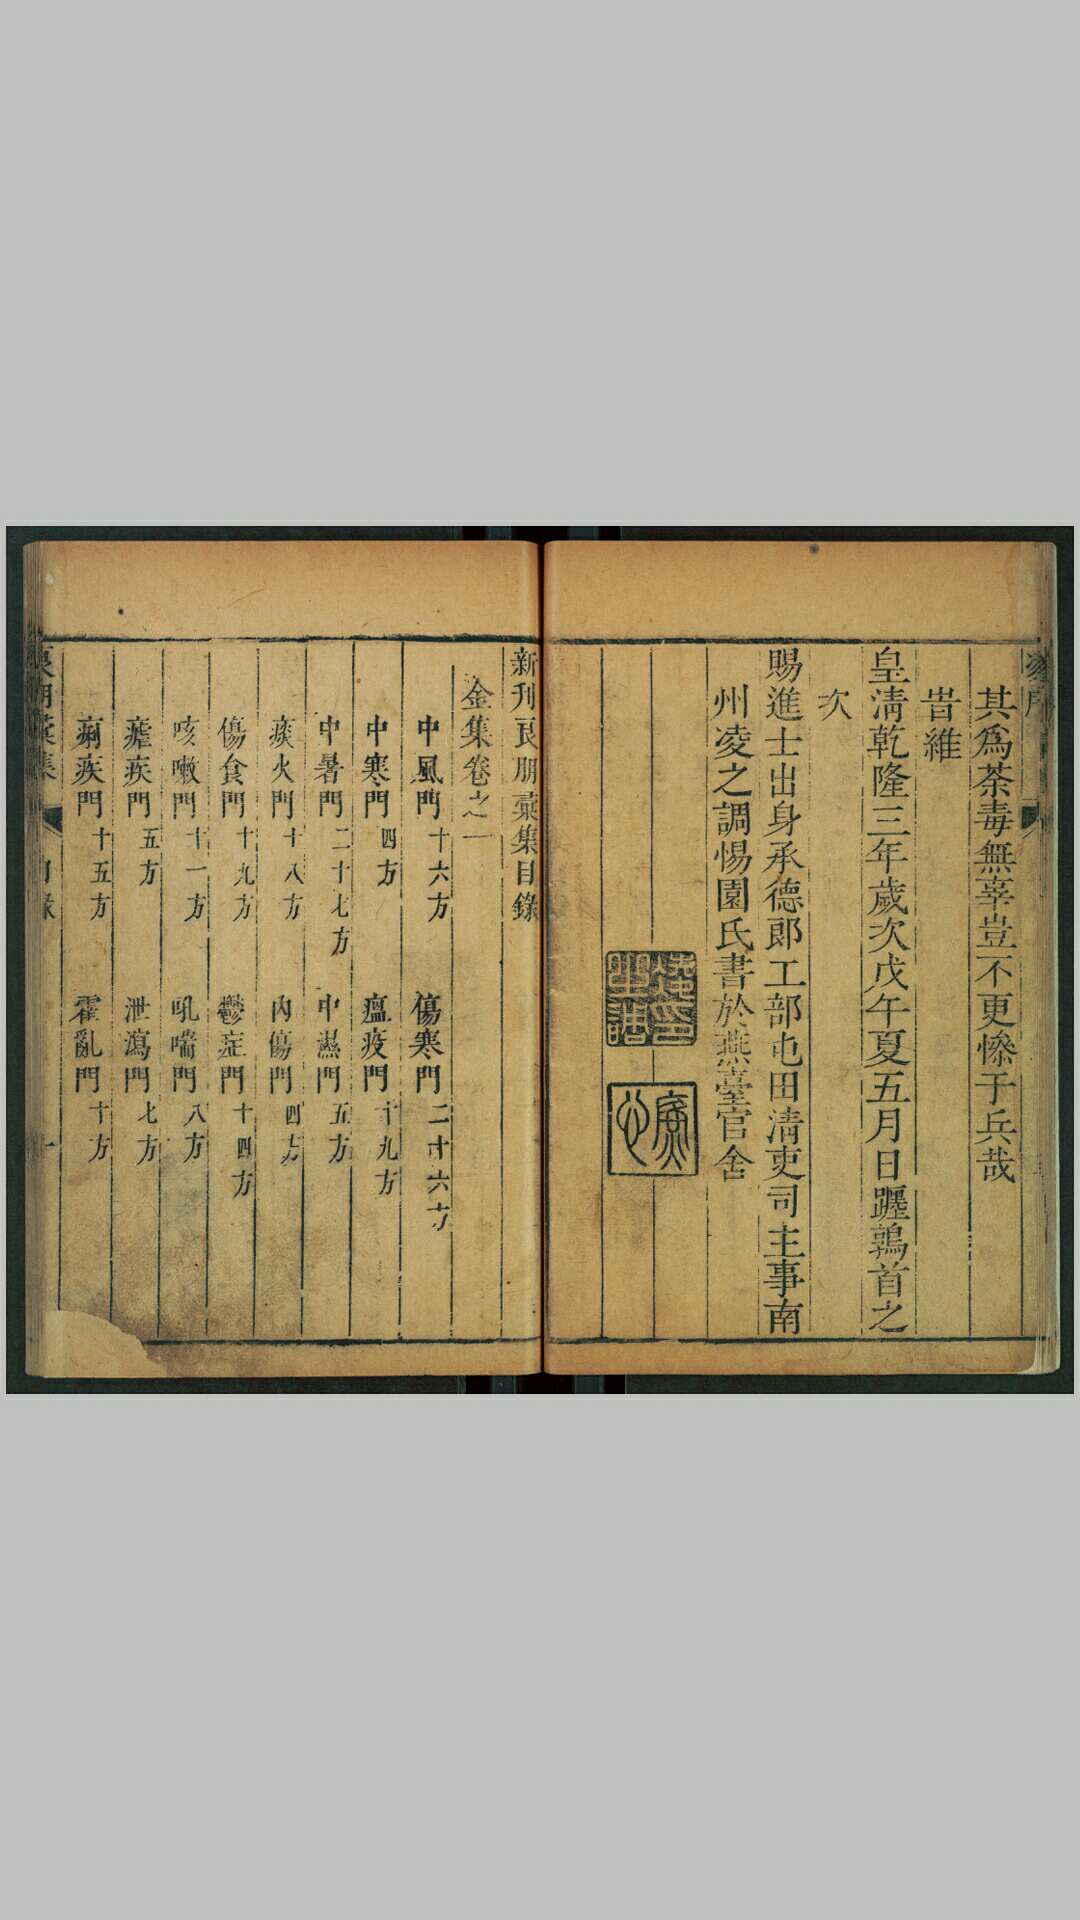 其爲荼毒無辜豈不更慘于兵哉
旹維
皇清乾隆三年歲次戊午夏五月日躔鶉首之
次
賜進士出身承德郎工部屯田清吏司主事南
州凌之調惕園氏書於燕臺官舍
新刊良朋彙集目錄
金集卷之一
中風門十六方 傷寒門二十六方
中寒門四方 瘟疫門十九方
中暑門二十七方 中濕門五方
痰火門十八方 內傷門四方
傷食門十九方 鬱症門十四方
咳嗽門十一方 吼喘門八方
瘧疾門五方 泄瀉門七方
痢疾門十五方 霍亂門十方